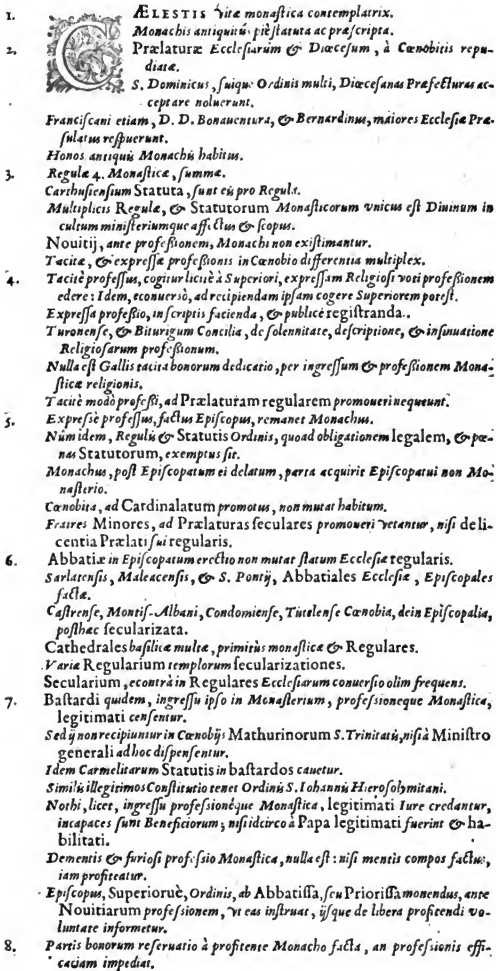 1. CÆLESTIS vitæ monastica contemplatrix.
Monachis antiquitùs piè statuta ac præscripta.
2. Prælaturæ Ecclesiarum & Diœcesum, à Cœnobitis repu-
diatæ.
S. Dominicus, suique Ordinis multi, Diœcesanas Præfecturas ac-
ceptare noluerunt.
Franciscani etiam, D. D. Bonauentura, & Bernardinus, maiores Ecclesiæ Præ-
sulatus respuerunt.
Honos antiquis Monachis habitus.
3. Regulæ 4. Monasticæ, summæ.
Carthusiensium Statuta, sunt eis pro Regula.
Multiplicis Regulæ, & Statutorum Monasticorum vnicus est Diuinum in
cultum ministeriumque affectus & scopus.
Nouitij, ante professionem, Monachi non existimantur.
Tacitæ, & expressæ professionis in Cœnobio differentia multiplex.
4. Tacitè professus, cogitur licitè à Superiori, expressam Religiosi voti professionem
edere: Idem, econuersò, ad recipiendam ipsam cogere Superiorem potest.
Expressa professio, in scriptis facienda, & publicè registranda.
Turonense, & Biturigum Concilia, de solennitate, descriptione, & insinuatione
Religiosarum professionum.
Nulla est Gallis tacita bonorum dedicatio, per ingressum & professionem Mona-
sticæ religionis.
Tacitè modò professi, ad Prælaturam regularem promoueri nequeunt.
5. Expressè professus, factus Episcopus, remanet Monachus.
Núm idem, Regulis & Statutis Ordinis, quoad obligationem legalem, & pœ-
nas Statutorum, exemptus sit.
Monachus, post Episcopatum ei delatum, parta acquirit Episcopatui non Mo-
nasterio.
Cœnobita, ad Cardinalatum promotus, non mutat habitum.
Fratres Minores, ad Prælaturas seculares promoueri vetantur, nisi de li-
centia Prælati sui regularis.
6. Abbatiæ in Episcopatum erectio non mutat statum Ecclesiæ regularis.
Sarlatensis, Maleacensis, & S. Pontij, Abbatiales Ecclesiæ, Episcopales
factæ.
Castrense, Montis-Albani, Condomiense, Tutelense Cœnobia, dein Episcopalia,
posthæc secularizata.
Cathedrales basilicæ multæ, primitùs monasticæ & Regulares.
Variæ Regularium templorum secularizationes.
Secularium, econtrà in Regulares Ecclesiarum conuersio olim frequens.
7. Bastardi quidem, ingressu ipso in Monasterium, professioneque Monastica,
legitimati censentur.
Sed ij non recipiuntur in Cœnobijs Mathurinorum S. Trinitatis, nisi à Ministro
generali ad hoc dispensentur.
Idem Carmelitarum Statutis in bastardos cauetur.
Similis illegitimos Constitutio tenet Ordinis S. Iohannis Hierosolymitani.
Nothi, licet, ingressu professionéque Monastica, legitimati Iure credantur,
incapaces sunt Beneficiorum; nisi idcirco à Papa legitimati fuerint & ha-
bilitati.
Dementis & furiosi professio Monastica, nulla est: nisi mentis compos factus,
iam profiteatur.
Episcopus, Superioruè, Ordinis, ab Abbatissa, seu Priorissa monendus, ante
Nouitiarum professionem, vt eas instruat, ijsque de libera profitendi vo-
luntate informetur.
8. Partis bonorum reseruatio à profitente Monacho facta, an professionis effi-
caciam impediat.